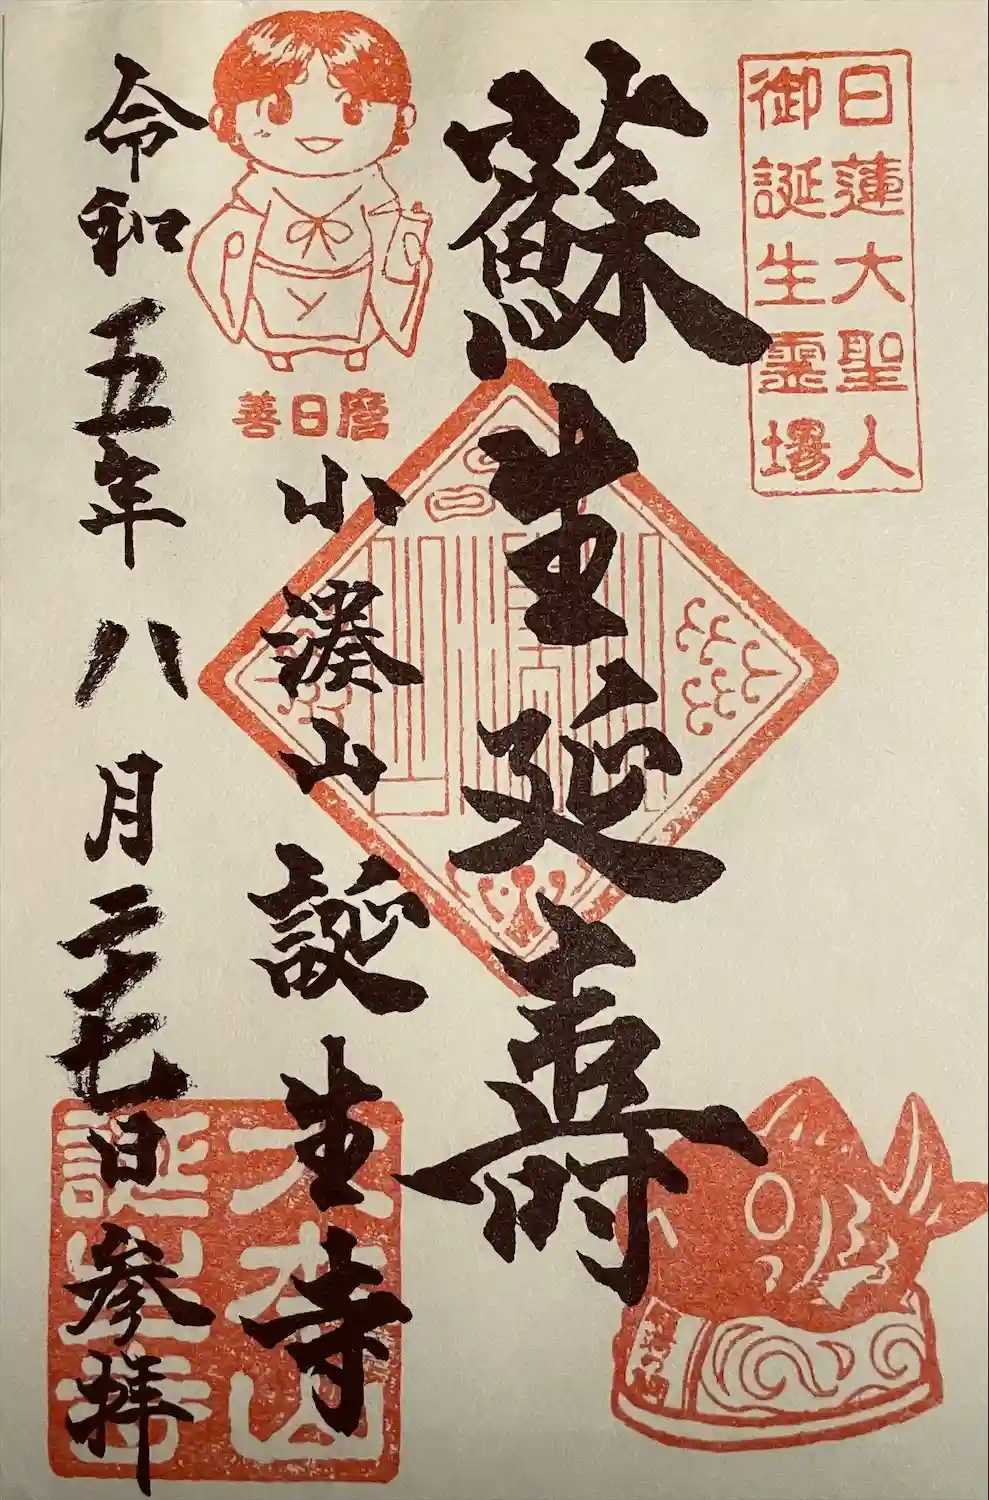 日蓮大聖人
御誕生霊場
蘇生延寿
善日麿
小湊山 誕生寺
大本山
誕生寺
令和五年八月二十七日参拝